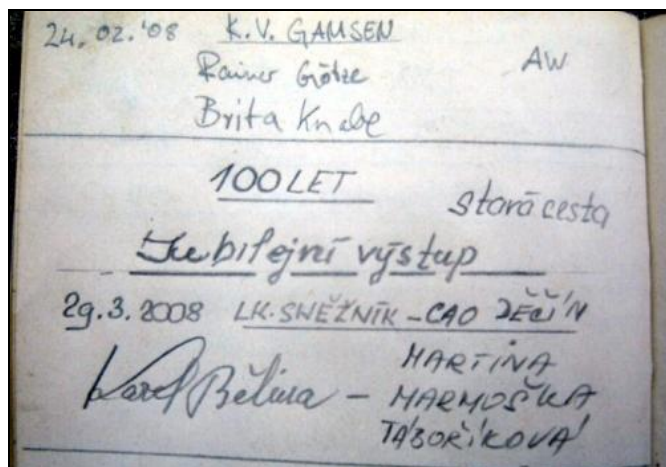 24.02.'08 K.V. GAMSEN
Rainer Götze AW
Brita Knabe
100 LET
stará cesta
Jubilejní výstup
29.3.2008 LK. SNĚŽNÍK - CAO DĚČÍN
Karel Bělina - MARTINA
MARMOŠKA
TÁBOŘÍKOVÁ